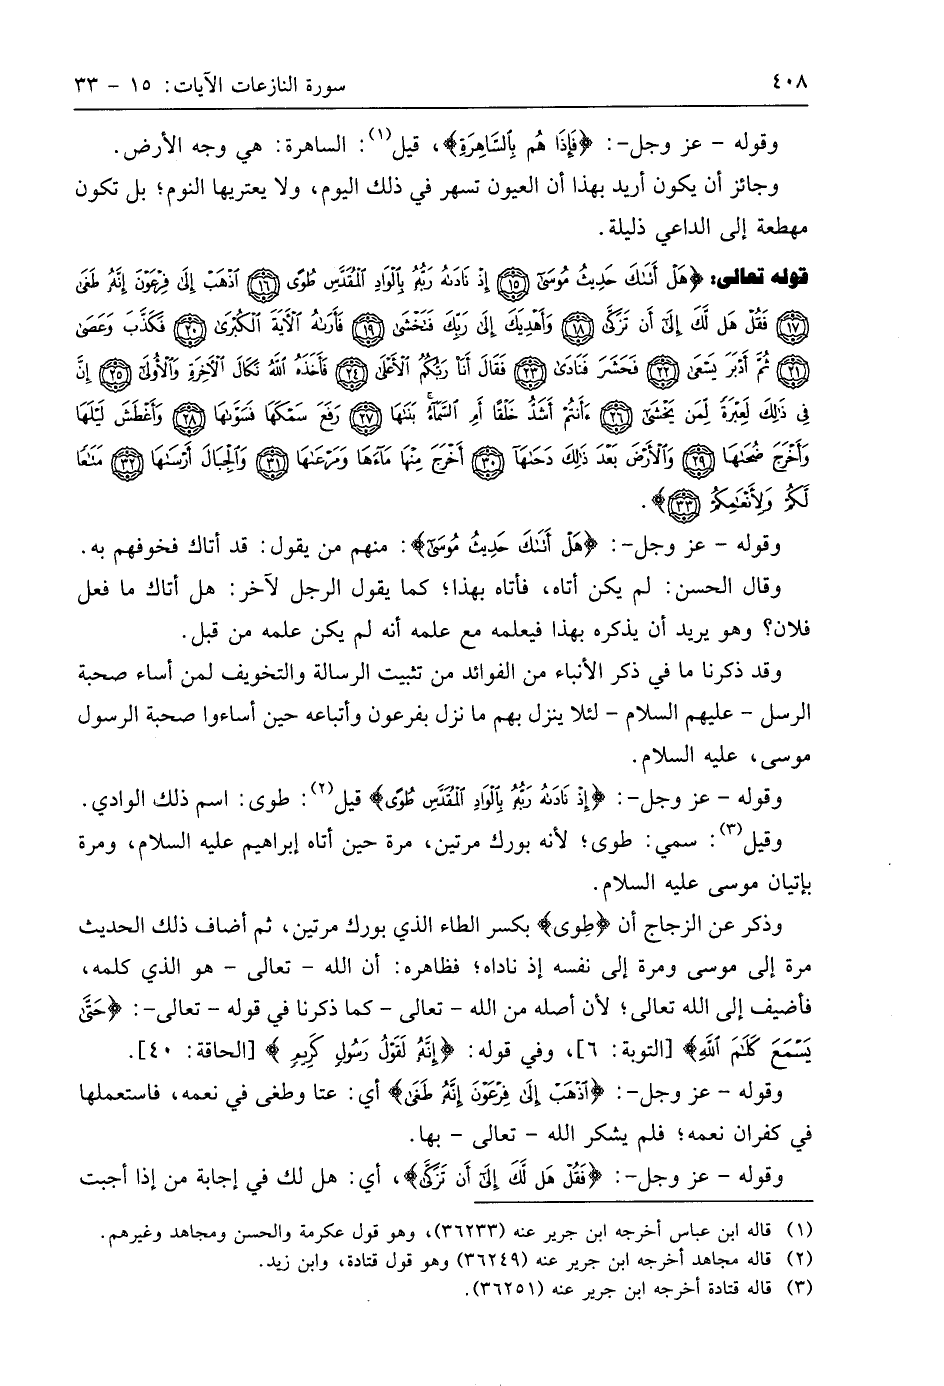 ٤٠٨ سورة النازعات الآيات: ١٥ - ٣٣
وقوله - عز وجل-: ﴿فَإِذَا هُم بِٱلسَّاهِرَةِ﴾، قيل(١): الساهرة: هي وجه الأرض.
وجائز أن يكون أريد بهذا أن العيون تسهر في ذلك اليوم، ولا يعتريها النوم؛ بل تكون
مهطعة إلى الداعي ذليلة.
قوله تعالى: ﴿هَلْ أَتَىٰكَ حَدِيثُ مُوسَىٰٓ ﴿١٥﴾ إِذْ نَادَىٰهُ رَبُّهُۥ بِٱلْوَادِ ٱلْمُقَدَّسِ طُوًى ﴿١٦﴾ ٱذْهَبْ إِلَىٰ فِرْعَوْنَ إِنَّهُۥ طَغَىٰ
﴿١٧﴾ فَقُلْ هَل لَّكَ إِلَىٰٓ أَن تَزَكَّىٰ ﴿١٨﴾ وَأَهْدِيَكَ إِلَىٰ رَبِّكَ فَتَخْشَىٰ ﴿١٩﴾ فَأَرَىٰهُ ٱلْءَايَةَ ٱلْكُبْرَىٰ ﴿٢٠﴾ فَكَذَّبَ وَعَصَىٰ
﴿٢١﴾ ثُمَّ أَدْبَرَ يَسْعَىٰ ﴿٢٢﴾ فَحَشَرَ فَنَادَىٰ ﴿٢٣﴾ فَقَالَ أَنَا۠ رَبُّكُمُ ٱلْأَعْلَىٰ ﴿٢٤﴾ فَأَخَذَهُ ٱللَّهُ نَكَالَ ٱلْءَاخِرَةِ وَٱلْأُولَىٰٓ ﴿٢٥﴾ إِنَّ
فِى ذَٰلِكَ لَعِبْرَةً لِّمَن يَخْشَىٰٓ ﴿٢٦﴾ ءَأَنتُمْ أَشَدُّ خَلْقًا أَمِ ٱلسَّمَآءُ ۚ بَنَىٰهَا ﴿٢٧﴾ رَفَعَ سَمْكَهَا فَسَوَّىٰهَا ﴿٢٨﴾ وَأَغْطَشَ لَيْلَهَا
وَأَخْرَجَ ضُحَىٰهَا ﴿٢٩﴾ وَٱلْأَرْضَ بَعْدَ ذَٰلِكَ دَحَىٰهَآ ﴿٣٠﴾ أَخْرَجَ مِنْهَا مَآءَهَا وَمَرْعَىٰهَا ﴿٣١﴾ وَٱلْجِبَالَ أَرْسَىٰهَا ﴿٣٢﴾ مَتَٰعًا
لَّكُمْ وَلِأَنْعَٰمِكُمْ ﴿٣٣﴾﴾.
وقوله - عز وجل-: ﴿هَلْ أَتَىٰكَ حَدِيثُ مُوسَىٰٓ﴾: منهم من يقول: قد أتاك فخوفهم به.
وقال الحسن: لم يكن أتاه، فأتاه بهذا؛ كما يقول الرجل لآخر: هل أتاك ما فعل
فلان؟ وهو يريد أن يذكره بهذا فيعلمه مع علمه أنه لم يكن علمه من قبل.
وقد ذكرنا ما في ذكر الأنباء من الفوائد من تثبيت الرسالة والتخويف لمن أساء صحبة
الرسل - عليهم السلام - لئلا ينزل بهم ما نزل بفرعون وأتباعه حين أساءوا صحبة الرسول
موسى، عليه السلام.
وقوله - عز وجل-: ﴿إِذْ نَادَىٰهُ رَبُّهُۥ بِٱلْوَادِ ٱلْمُقَدَّسِ طُوًى﴾ قيل(٢): طوى: اسم ذلك الوادي.
وقيل(٣): سمي: طوى؛ لأنه بورك مرتين، مرة حين أتاه إبراهيم عليه السلام، ومرة
بإتيان موسى عليه السلام.
وذكر عن الزجاج أن ﴿طِوى﴾ بكسر الطاء الذي بورك مرتين، ثم أضاف ذلك الحديث
مرة إلى موسى ومرة إلى نفسه إذ ناداه؛ فظاهره: أن الله - تعالى - هو الذي كلمه،
فأضيف إلى الله تعالى؛ لأن أصله من الله - تعالى - كما ذكرنا في قوله - تعالى-: ﴿حَتَّىٰ
يَسْمَعَ كَلَٰمَ ٱللَّهِ﴾ [التوبة: ٦]، وفي قوله: ﴿إِنَّهُۥ لَقَوْلُ رَسُولٍ كَرِيمٍ﴾ [الحاقة: ٤٠].
وقوله - عز وجل-: ﴿ٱذْهَبْ إِلَىٰ فِرْعَوْنَ إِنَّهُۥ طَغَىٰ﴾ أي: عتا وطغى في نعمه، فاستعملها
في كفران نعمه؛ فلم يشكر الله - تعالى - بها.
وقوله - عز وجل-: ﴿فَقُلْ هَل لَّكَ إِلَىٰٓ أَن تَزَكَّىٰ﴾، أي: هل لك في إجابة من إذا أجبت
(١) قاله ابن عباس أخرجه ابن جرير عنه (٣٦٢٣٣)، وهو قول عكرمة والحسن ومجاهد وغيرهم.
(٢) قاله مجاهد أخرجه ابن جرير عنه (٣٦٢٤٩) وهو قول قتادة، وابن زيد.
(٣) قاله قتادة أخرجه ابن جرير عنه (٣٦٢٥١).